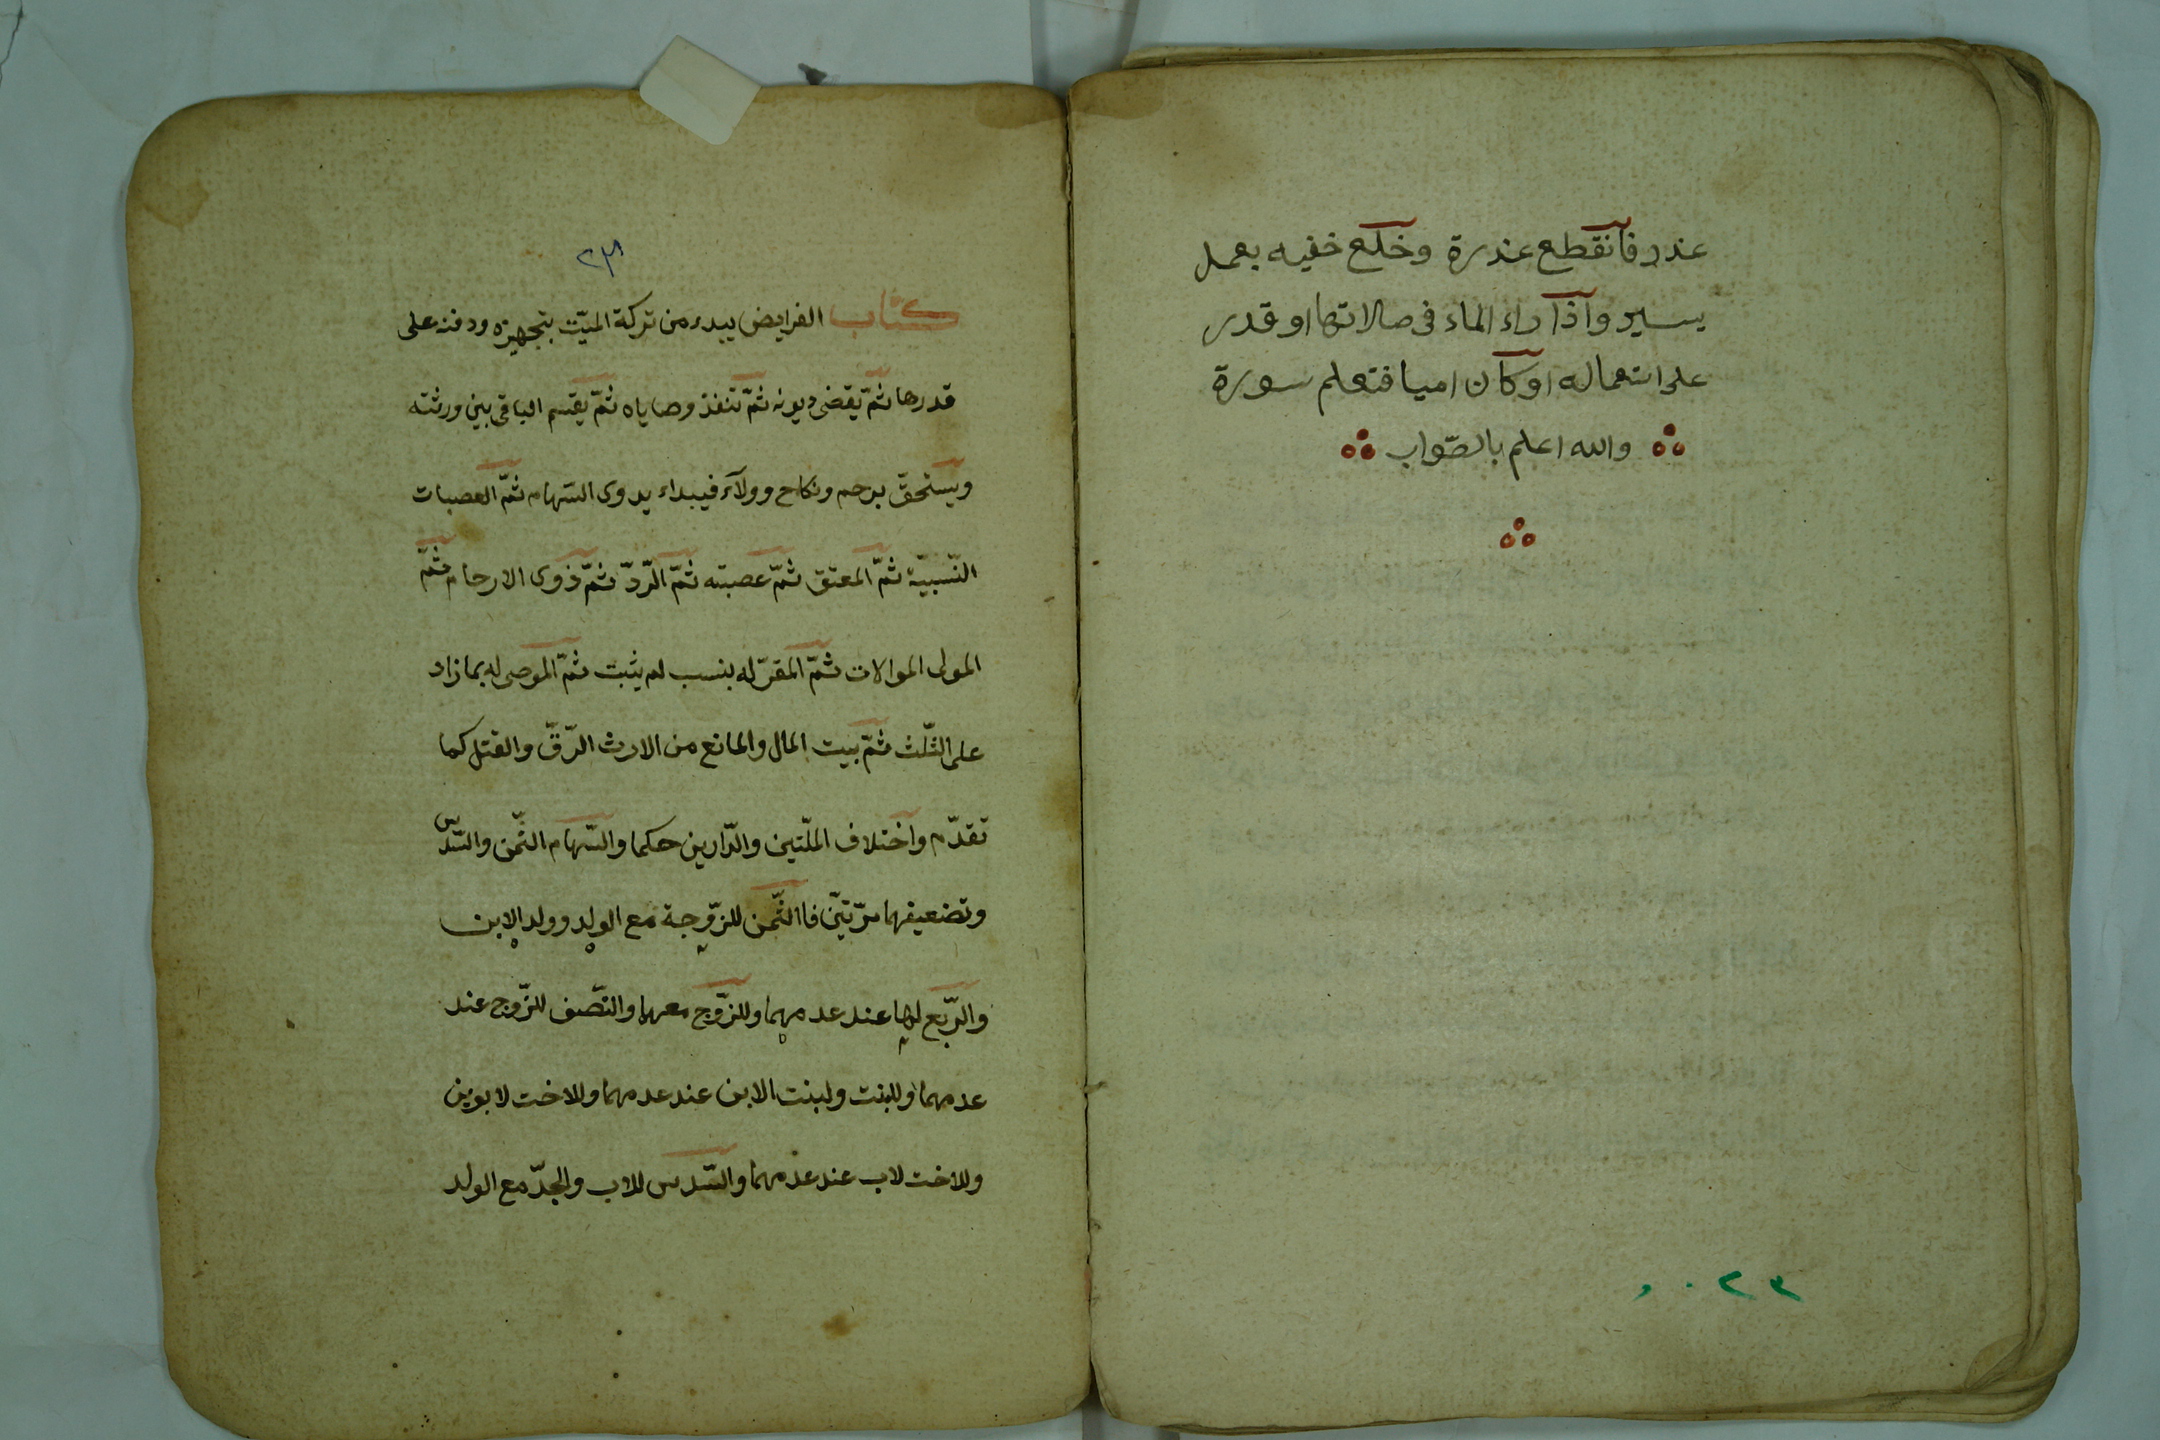 عذر فانقطع عذرة وخلع خفيه بعمل
يسير واذا راء الماء فى صالاتها او قدر
على استعماله او كان اميا فتعلم سورة
والله اعلم بالصّواب
٢٣
كتاب الفرايض يبدء من تركة الميّت بتجهيزه ودفنه على
قدرها ثمّ يقضى ديونه ثمّ تنفذ وصاياه ثمّ يقسم الباقى بين ورثته
ويستحقّ برحم ونكاح وولآء فيبداء بدوى السّهام ثمّ العصبات
النّسبيّة ثمّ المعتق ثمّ عصبته ثمّ الرّدّ ثمّ ذوى الارحام ثمّ
المولى الموالات ثمّ المقرّ له بنسب لم يثبت ثمّ الموصى له بما زاد
على الثّلث ثمّ بيت المال والمانع من الارث الرّقّ والقتل كما
تقدّم واختلاف الملّتين والدّارين حكما والسّهام الثّمن والسّدس
وتضعيفهما مرّتين فاالثّمن للزّوجة مع الولد وولد الابن
والرّبع لها عند عدمهما وللزّوج معهما والنّصف للزّوج عند
عدمهما وللبنت ولبنت الابن عند عدمهما وللاخت لابوين
وللاخت لاب عند عدمهما والسّدس للاب والجدّ مع الولد